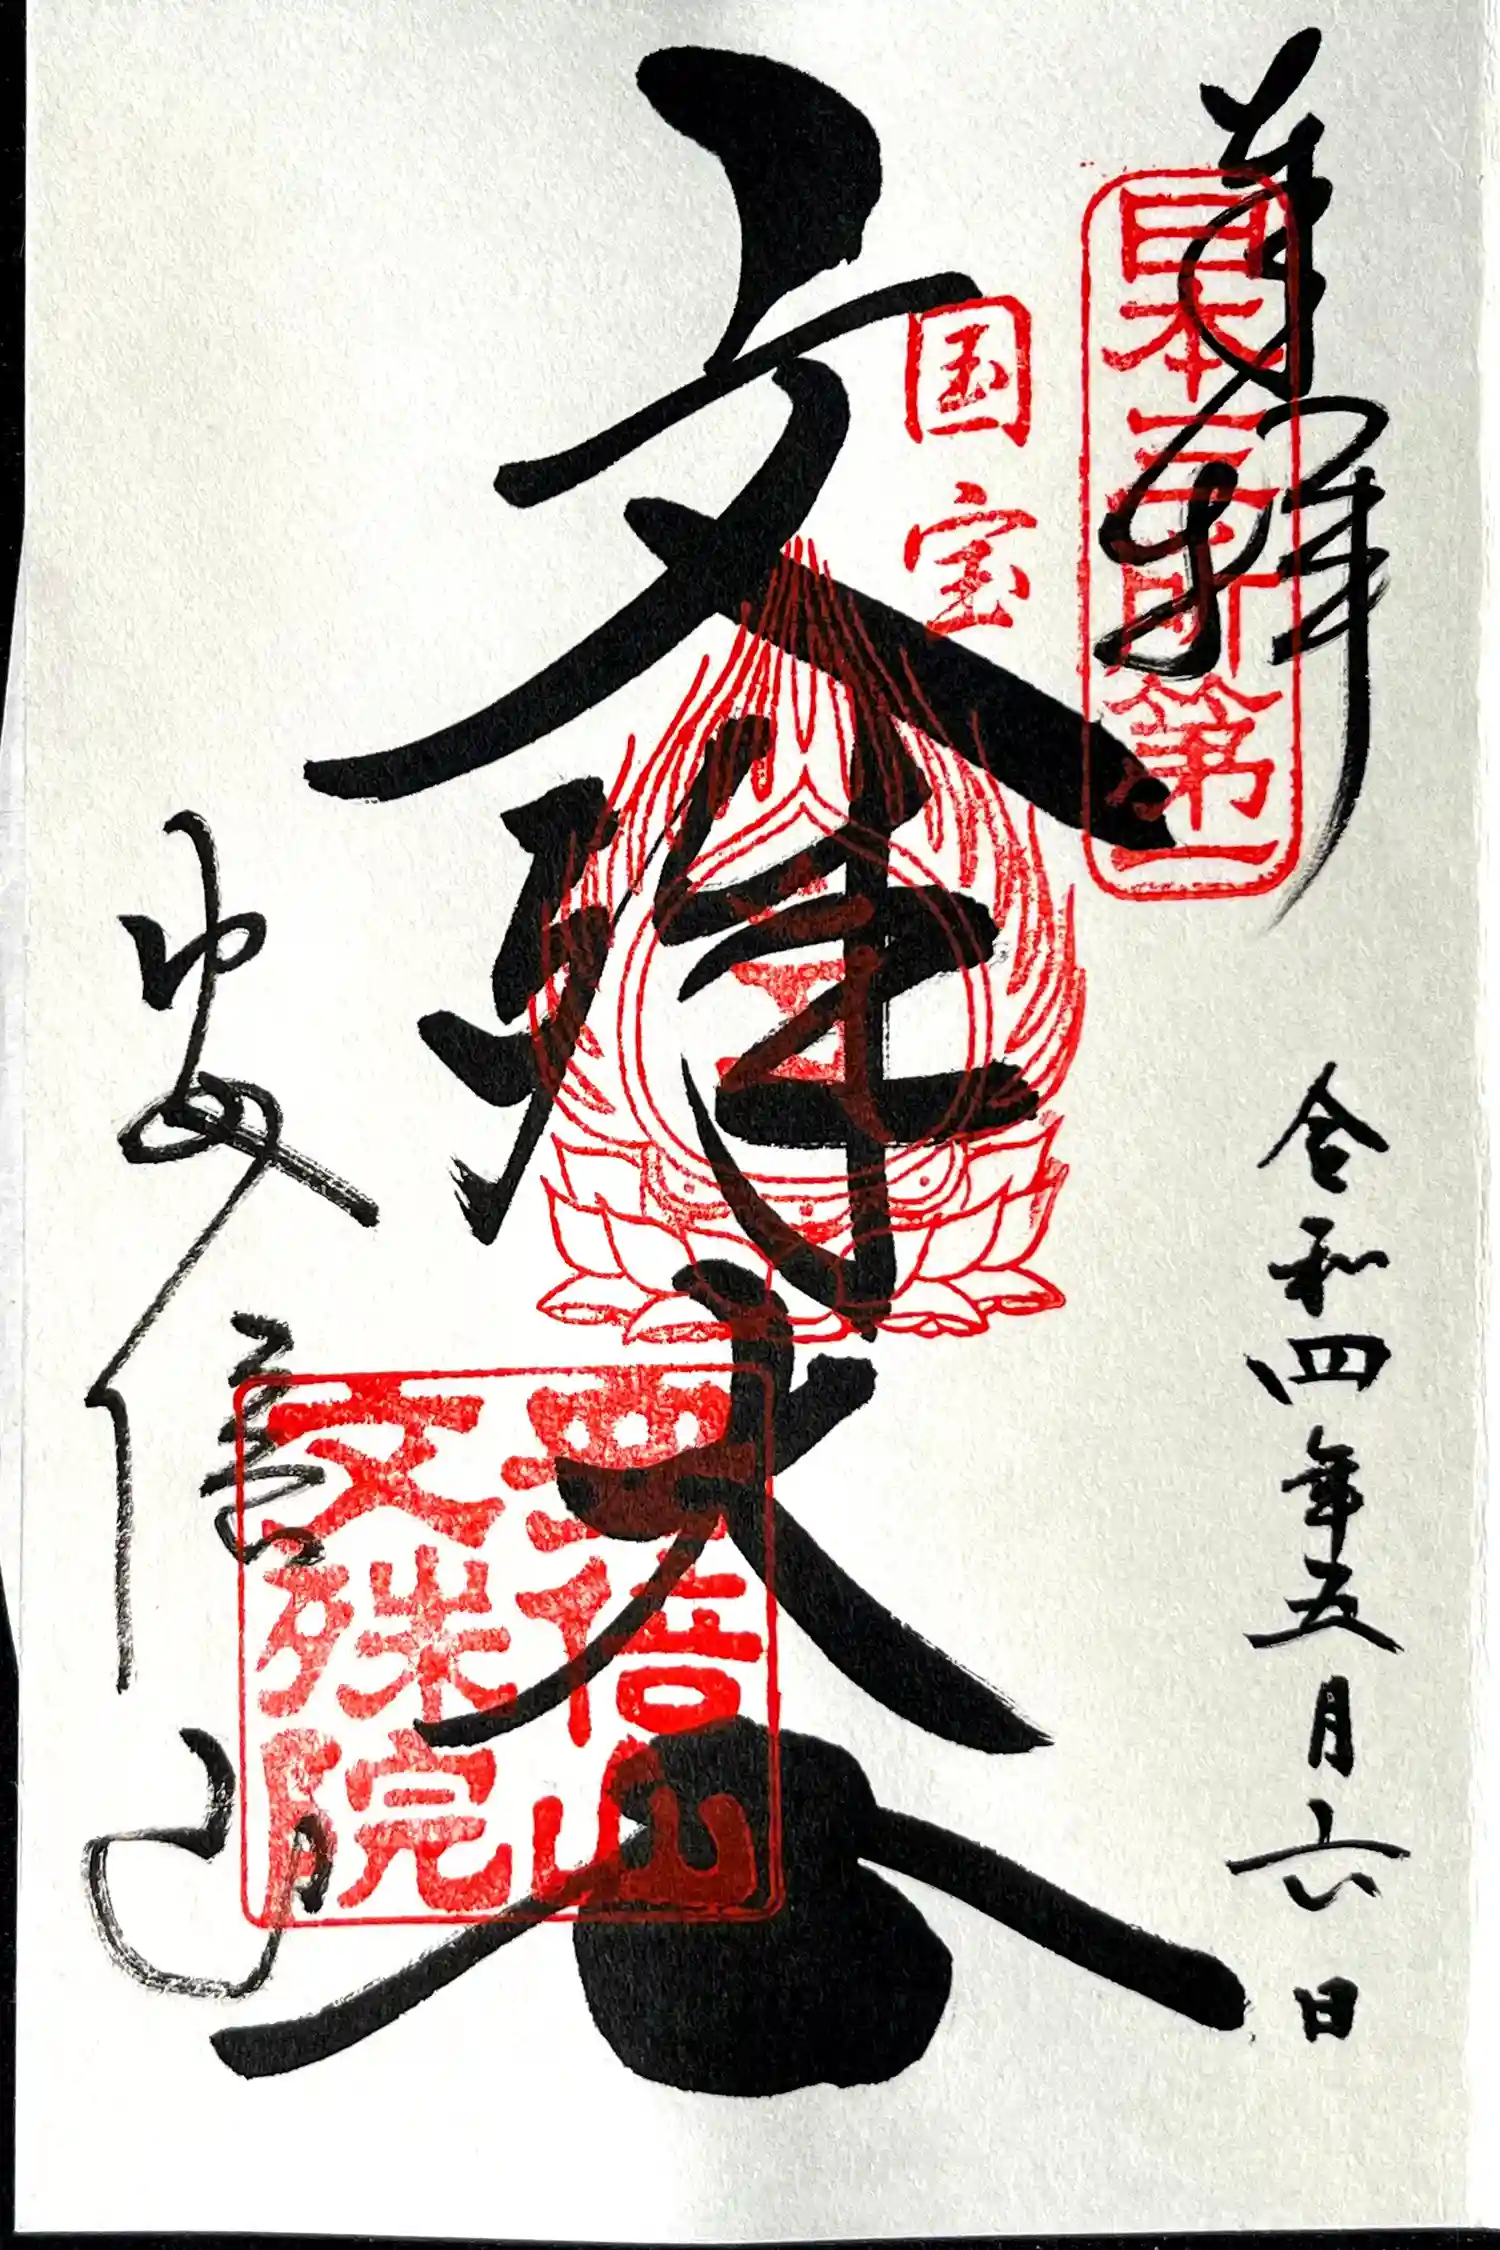 奉拝
日本三所第一
令和四年五月六日
国宝
文殊大士
安倍山
文殊院
安倍山